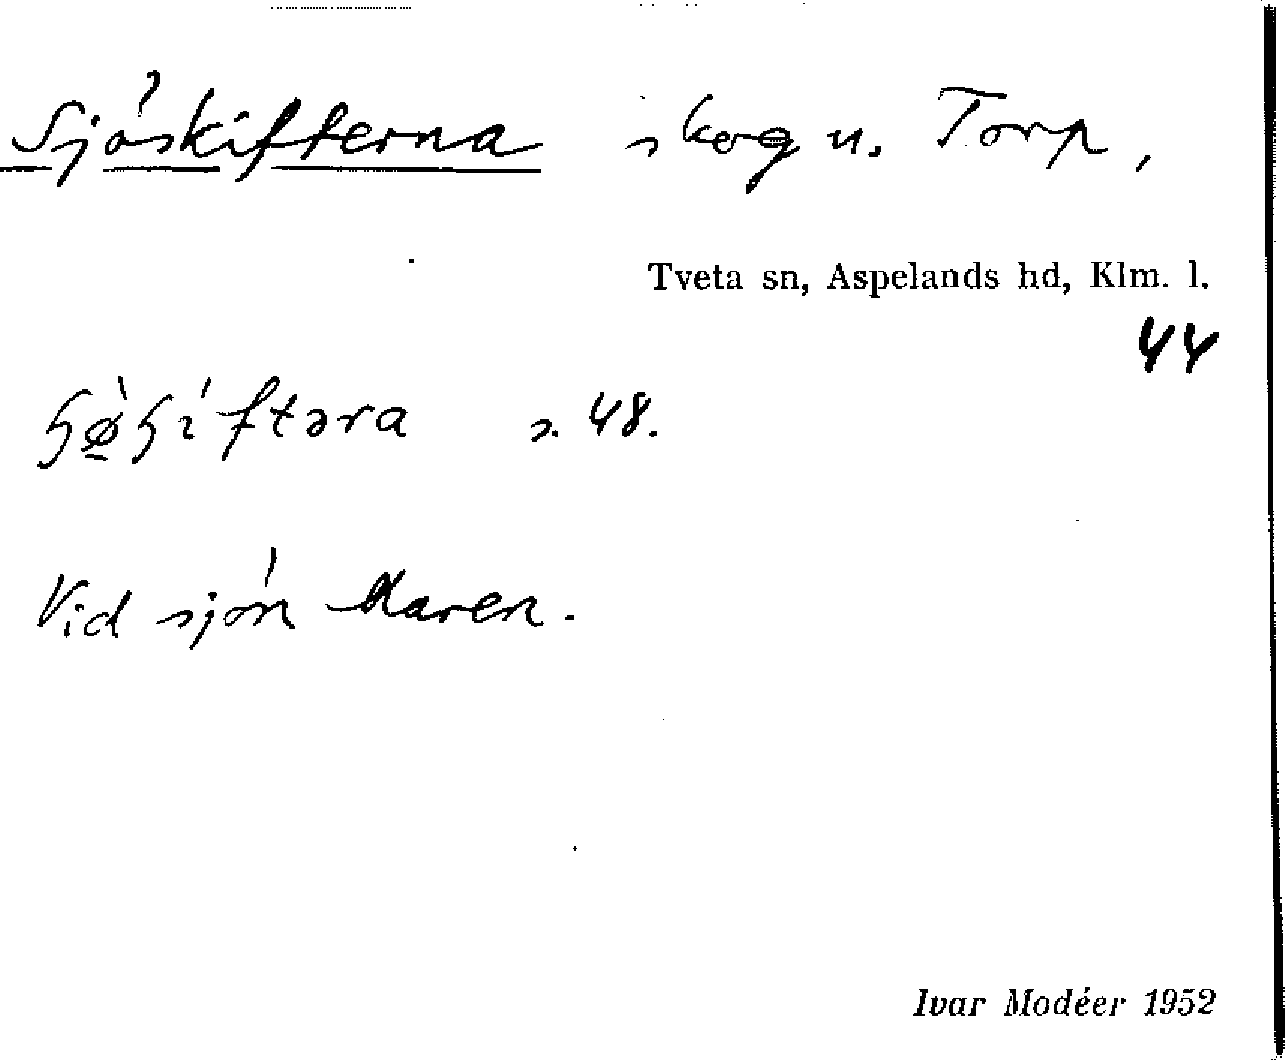 Sjöskifterna skog u. Torp,
Tveta sn, Aspelands hd, Klm. l.
44
s. 48.
Vid sjön Maren.
Ivar Modéer 1952